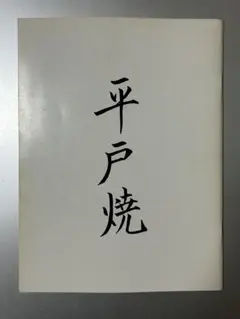 平戸焼